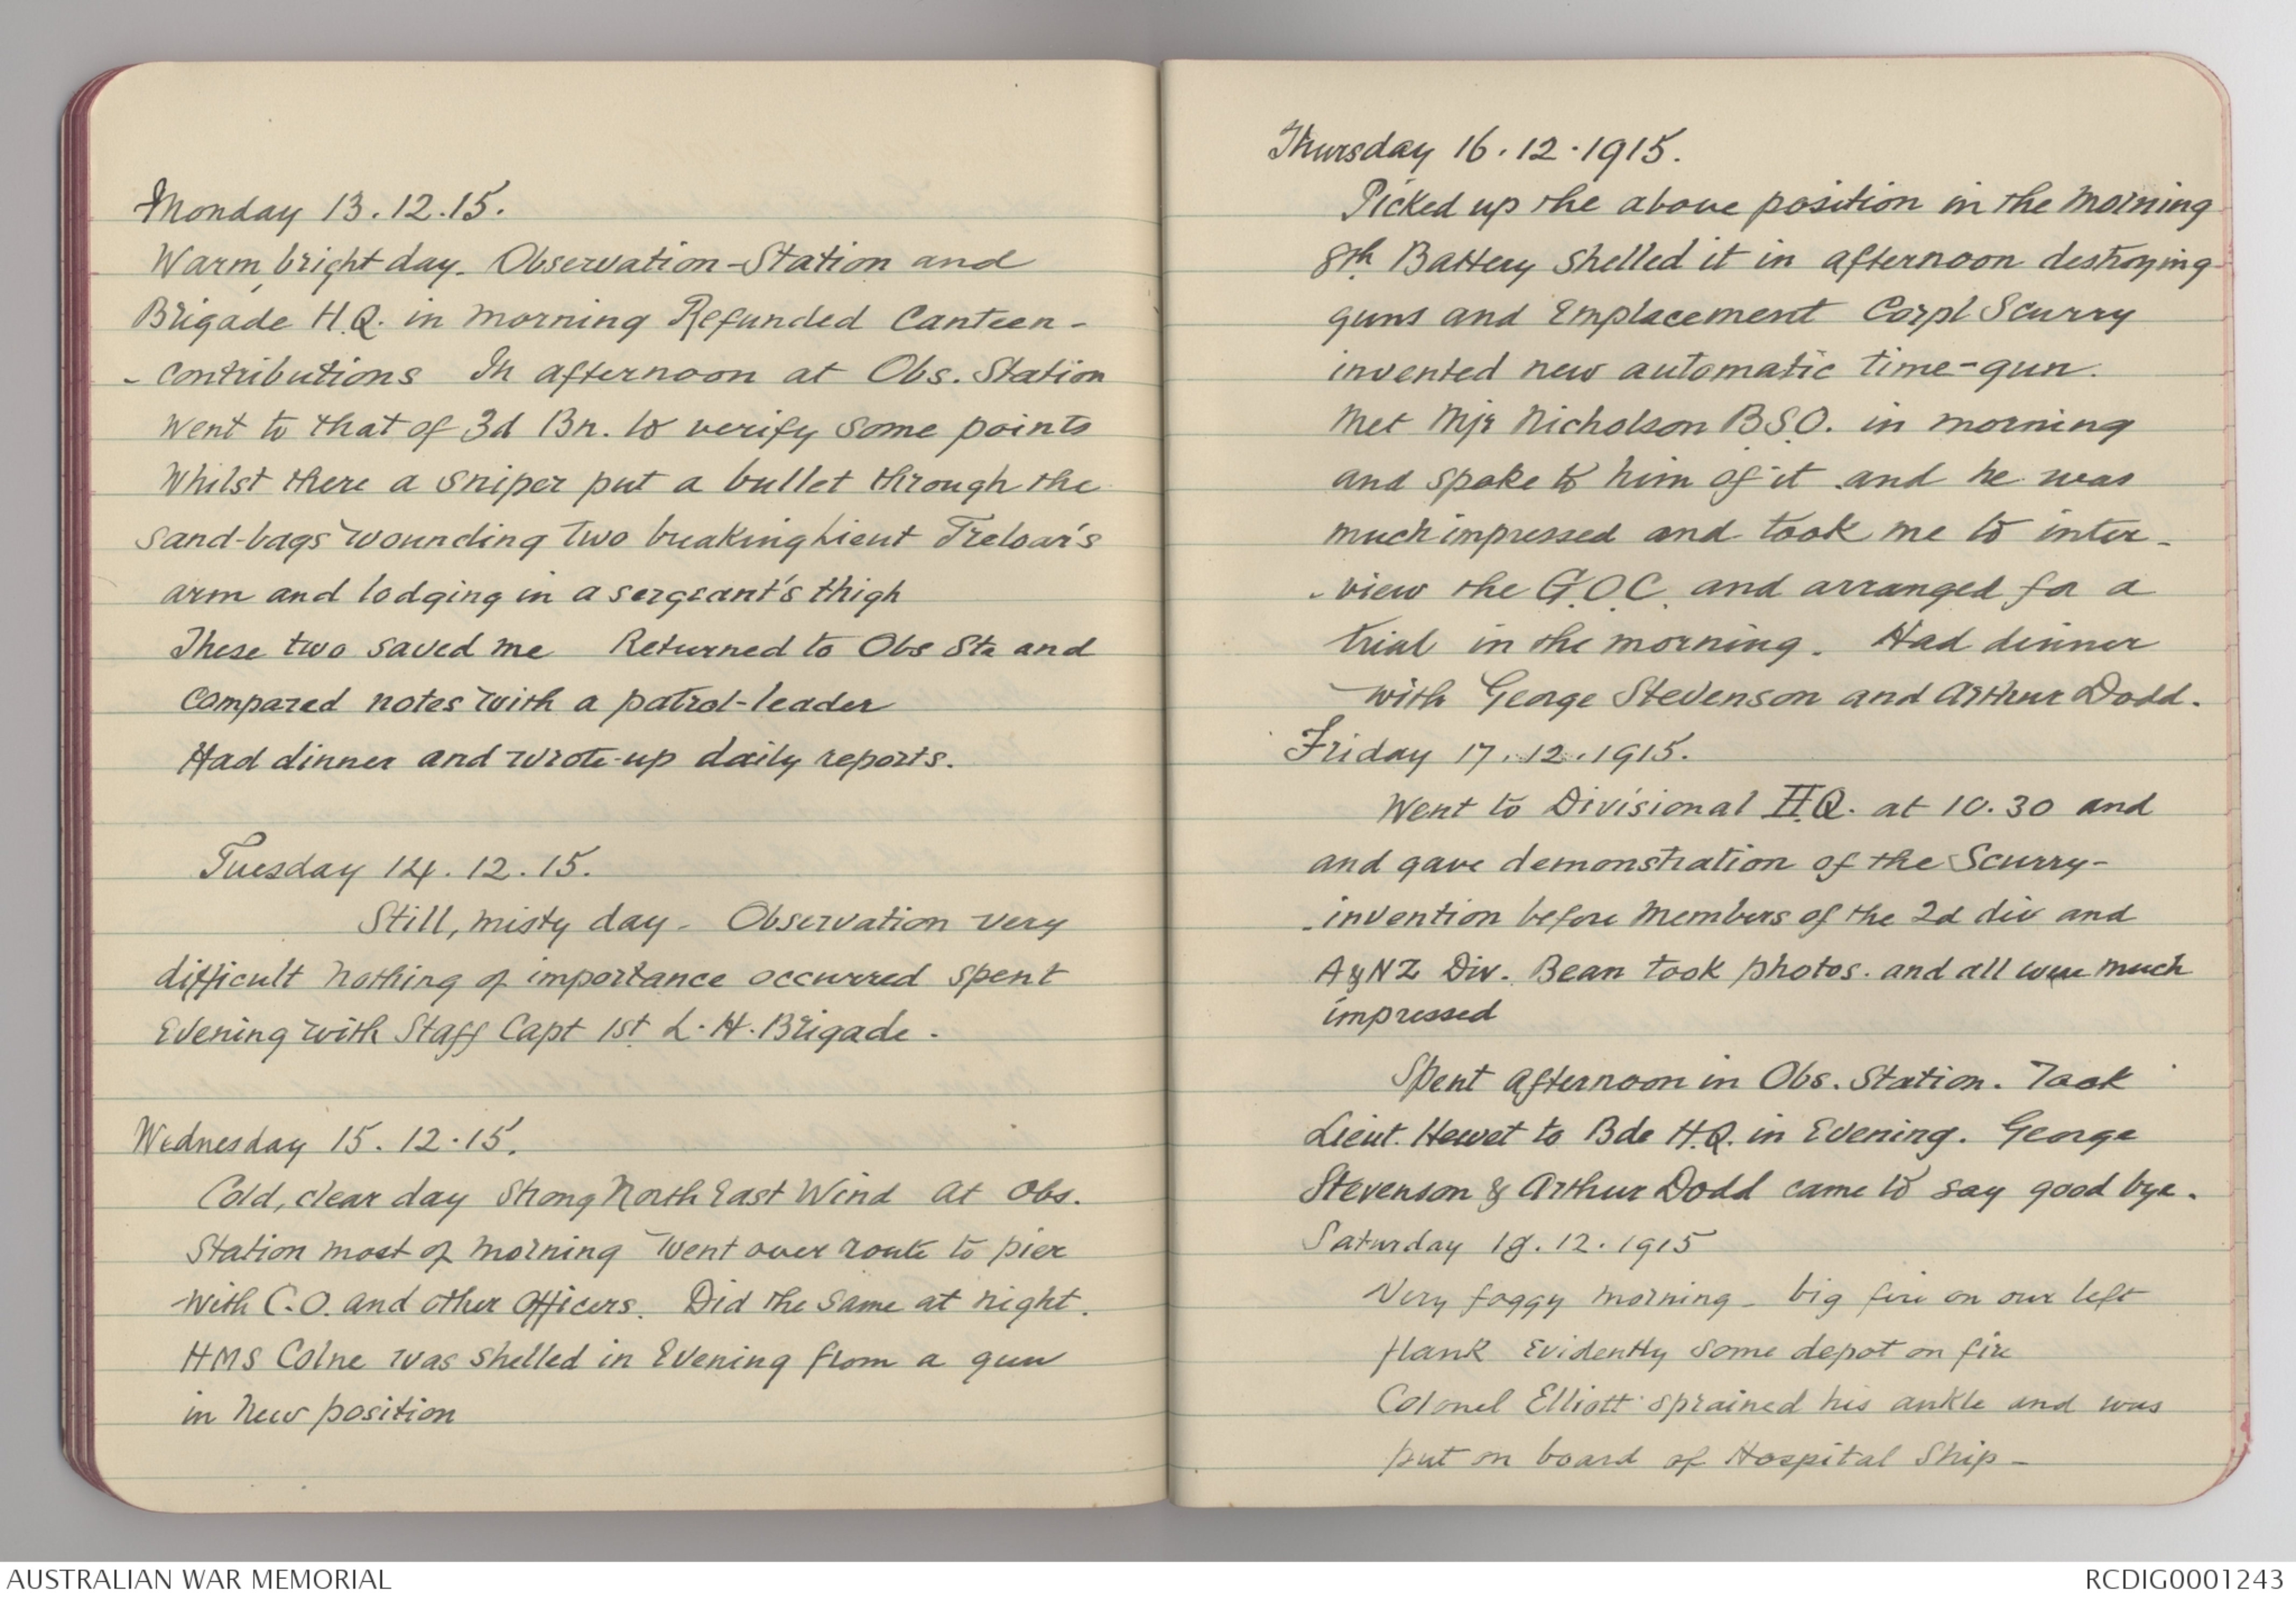 Monday 13.12.15.
Warm, bright day. Observation-Station and
Brigade H.Q. in morning Refunded Canteen-
- contributions In afternoon at Obs. Station
Went to that of 3d Bn. to verify some points
Whilst there a sniper put a bullet through the
sand-bags wounding two breaking Lieut Treloar's
arm and lodging in a sergeant's thigh
These two saved me Returned to Obs Sta and
compared notes with a patrol-leader
Had dinner and wrote-up daily reports.
Tuesday 14.12.15.
Still, misty day - Observation very
difficult nothing of importance occurred spent
Evening with Staff Capt 1st L.H. Brigade.
Wednesday 15.12.15.
Cold, clear day Strong North East Wind At Obs.
Station most of morning Went over route to pier
with C.O. and other Officers. Did the same at night.
HMS Colne was shelled in Evening from a gun
in new position
Thursday 16.12.1915.
Picked up the above position in the morning
8th Battery shelled it in afternoon destroying
guns and Emplacement Corpl Scurry
invented new automatic time-gun.
Met Mjr Nicholson B.S.O. in morning
and spoke to him of it and he was
much impressed and took me to inter-
- view the G.O.C. and arranged for a
trial in the morning. Had dinner
with George Stevenson and Arthur Dodd.
Friday 17.12.1915.
Went to Divisional H.Q. at 10.30 and
and gave demonstration of the Scurry-
- invention before members of the 2d div and
A & NZ Div. Bean took photos. and all were much
impressed
Spent afternoon in Obs. Station. Took
Lieut. Hewet to Bde H.Q. in Evening. George
Stevenson & Arthur Dodd came to say good bye.
Saturday 18.12.1915
Very foggy morning - big fire on our left
flank Evidently some depot on fire
Colonel Elliott sprained his ankle and was
put on board of Hospital Ship -
AUSTRALIAN WAR MEMORIAL
RCDIG0001243